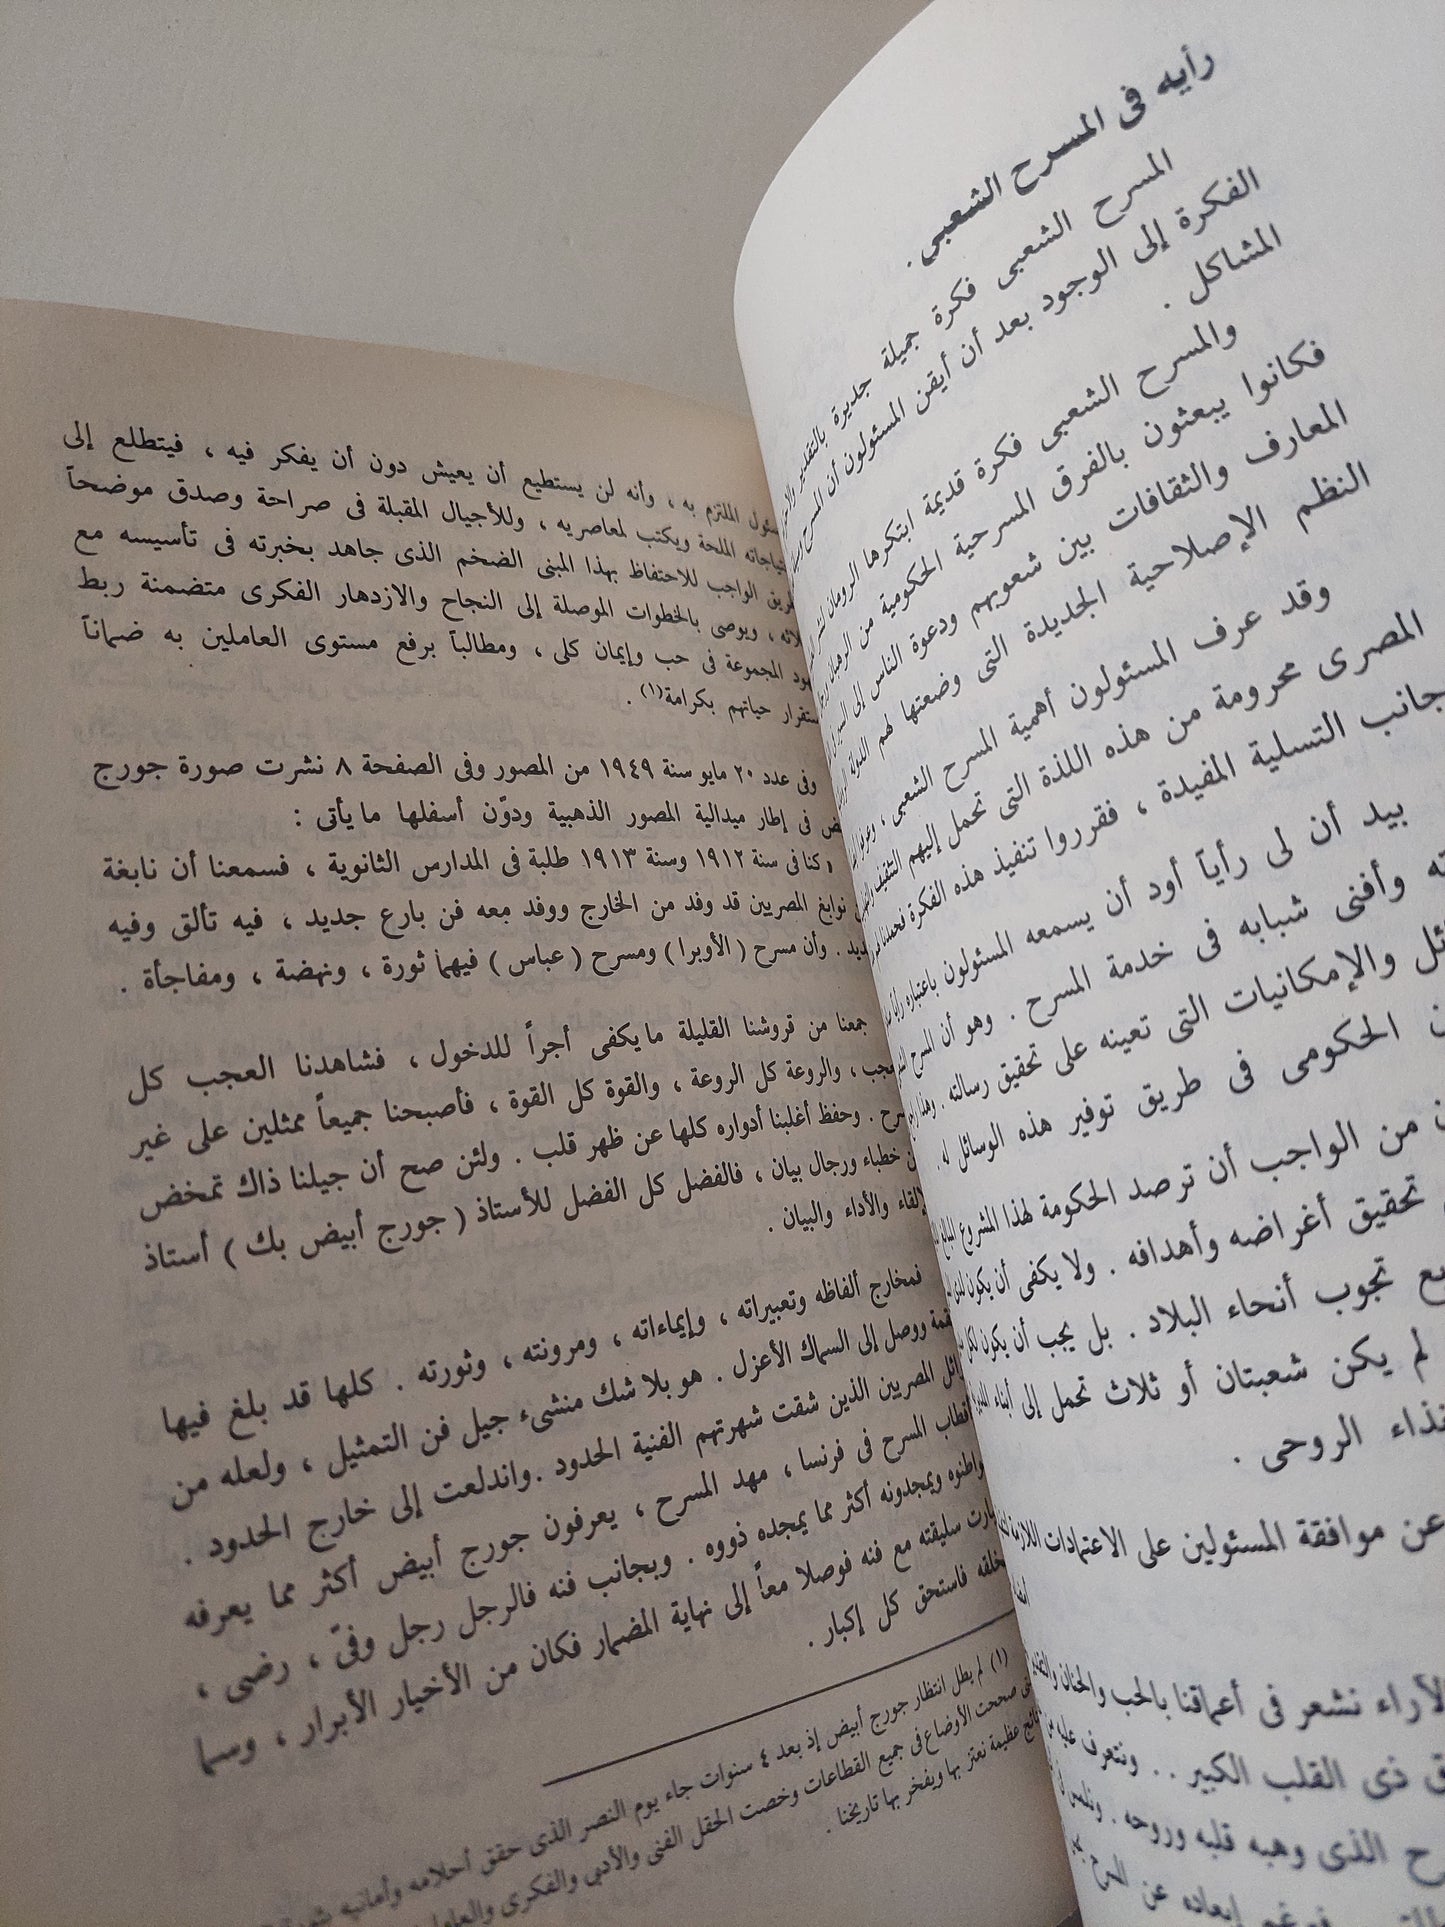 رأيه فى المسرح الشعبى .
المسرح الشعبى فكرة جميلة جديرة بالتقدير
الفكرة إلى الوجود بعد أن أيقن المسئولون أن المسرح
المشاكل .
والمسرح الشعبى فكرة قديمة ابتكرها الرومان
فكانوا يبعثون بالفرق المسرحية الحكومية من الرومان
المعارف والثقافات بين شعوبهم ودعوة الناس إلى
النظم الإصلاحية الجديدة التى وضعتها لهم الدولة
وقد عرف المسئولون أهمية المسرح الشعبى ،
المصرى محرومة من هذه اللذة التى تحمل إليهم التثقيف
جانب التسلية المفيدة ، فقرروا تنفيذ هذه الفكرة
بيد أن لى رأياً أود أن يسمعه المسئولون باعتباره
وأفنى شبابه فى خدمة المسرح . وهو أن المسرح
والإمكانيات التى تعينه على تحقيق رسالته .
الحكومى فى طريق توفير هذه الوسائل له .
من الواجب أن ترصد الحكومة لهذا المشروع
تحقيق أغراضه وأهدافه . ولا يكفى أن يكون
تجوب أنحاء البلاد . بل يجب أن يكون لكل
لم يكن شعبتان أو ثلاث تحمل إلى أبناء
الروحى .
عن موافقة المسئولين على الاعتمادات اللازمة
الآراء نشعر فى أعماقنا بالحب والحنان
ذى القلب الكبير . . ونتعرف عليه
الذى وهبه قلبه وروحه .
إبعاده عن المسرح
الملتزم به ، وأنه لن يستطيع أن يعيش دون أن يفكر فيه ، فيتطلع إلى
الملحة ويكتب لمعاصريه ، وللأجيال المقبلة فى صراحة وصدق موضحاً
الواجب للاحتفاظ بهذا المبنى الضخم الذى جاهد بخبرته فى تأسيسه مع
، ويوصى بالخطوات الموصلة إلى النجاح والازدهار الفكرى متضمنة ربط
المجموعة فى حب وإيمان كلى ، ومطالباً برفع مستوى العاملين به ضماناً
حياتهم بكرامة(١) .
وفى عدد ٢٠ مايو سنة ١٩٤٩ من المصور وفى الصفحة ٨ نشرت صورة جورج
فى إطار ميدالية المصور الذهبية ودوّن أسفلها ما يأتى :
وكنا فى سنة ١٩١٢ وسنة ١٩١٣ طلبة فى المدارس الثانوية ، فسمعنا أن نابغة
نوابغ المصريين قد وفد من الخارج ووفد معه فن بارع جديد ، فيه تألق وفيه
. وأن مسرح ( الأوبرا ) ومسرح ( عباس ) فيهما ثورة ، ونهضة ، ومفاجأة .
جمعنا من قروشنا القليلة ما يكفى أجراً للدخول ، فشاهدنا العجب كل
، والروعة كل الروعة ، والقوة كل القوة ، فأصبحنا جميعاً ممثلين على غير
. وحفظ أغلبنا أدواره كلها عن ظهر قلب . ولئن صح أن جيلنا ذاك تمخض
خطباء ورجال بيان ، فالفضل كل الفضل للأستاذ ( جورج أبيض بك ) أستاذ
والأداء والبيان .
فمخارج ألفاظه وتعبيراته ، وإيماءاته ، ومرونته ، وثورته . كلها قد بلغ فيها
ووصل إلى السماك الأعزل . هو بلا شك منشىء جيل فن التمثيل ، ولعله من
المصريين الذين شقت شهرتهم الفنية الحدود . واندلعت إلى خارج الحدود .
المسرح فى فرنسا ، مهد المسرح ، يعرفون جورج أبيض أكثر مما يعرفه
ويمجدونه أكثر مما يمجده ذووه . وبجانب فنه فالرجل رجل وفىّ ، رضى ،
سليقته مع فنه فوصلا معاً إلى نهاية المضمار فكان من الأخيار الأبرار ، وسما
فاستحق كل إكبار .
(١) لم يطل انتظار جورج أبيض إذ بعد ٤ سنوات جاء يوم النصر الذى حقق أحلامه وأمانيه
صححت الأوضاع فى جميع القطاعات وخصت الحقل الفنى والأدبى والفكرى
عظيمة نعتز بها ويفخر بها تاريخنا .